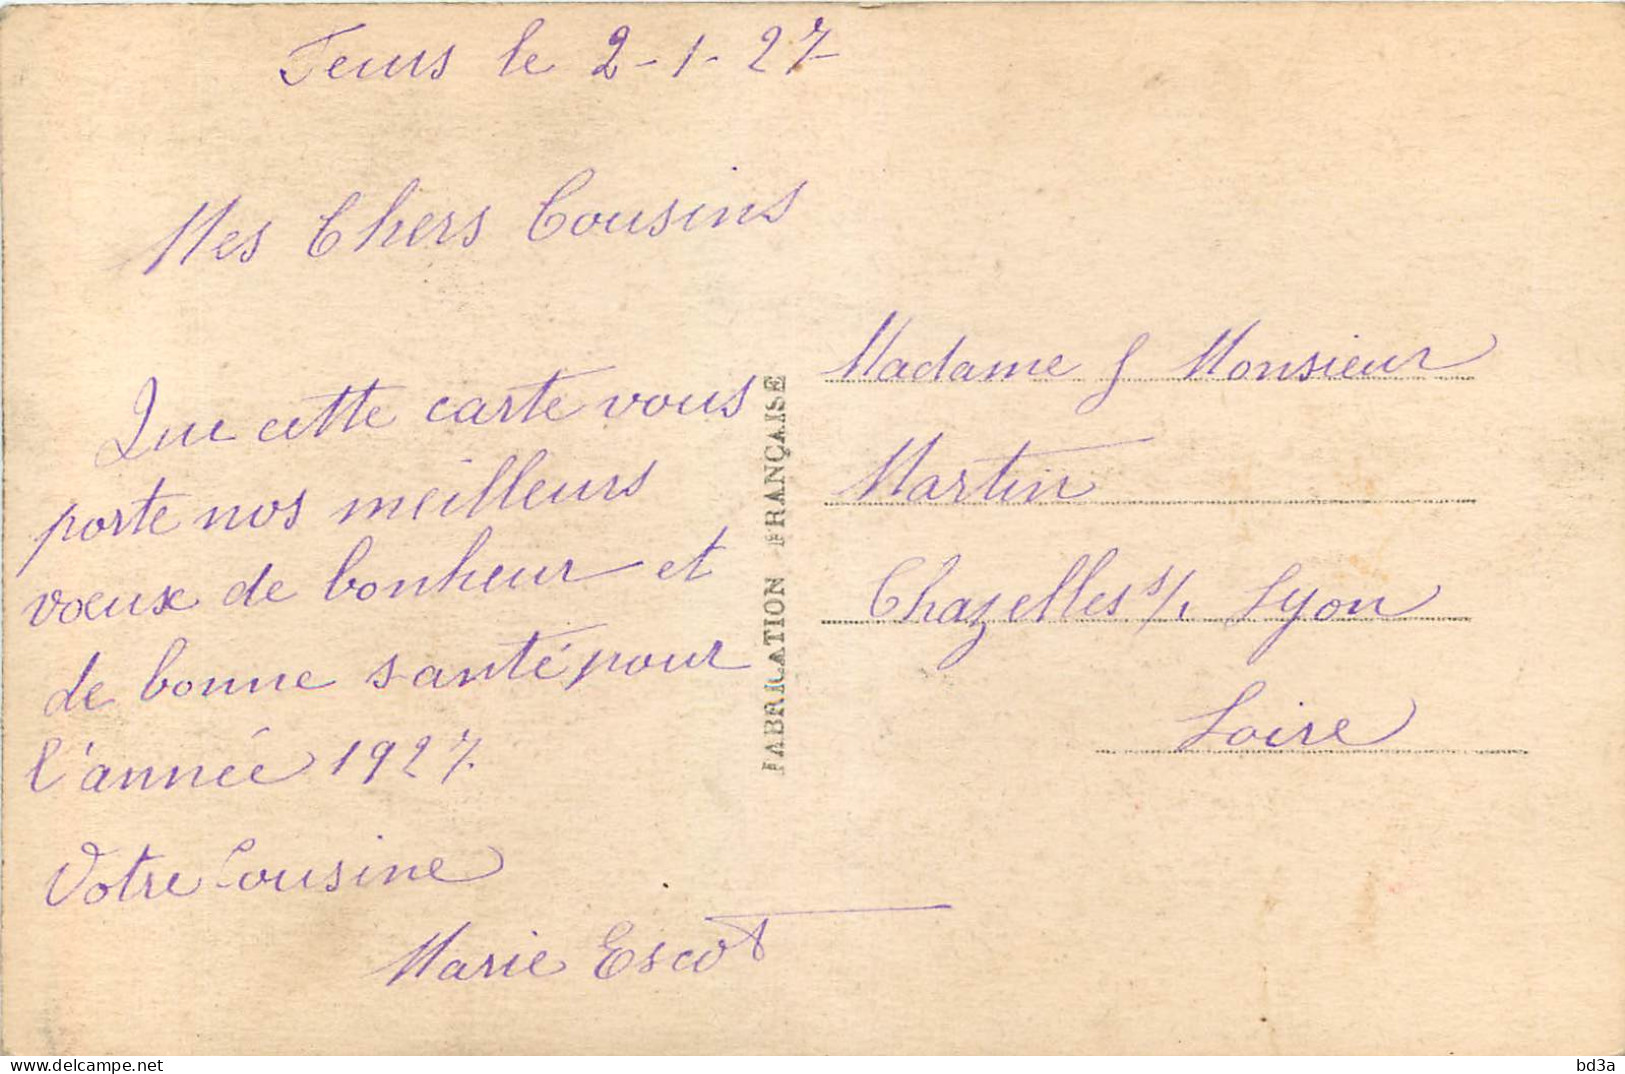 Feurs le 2-1-27
Mes Chers Cousins
Que cette carte vous
porte nos meilleurs
voeux de bonheur et
de bonne santé pour
l'année 1927.
Votre Cousine
Marie Escot
FABRICATION FRANÇAISE
Madame & Monsieur
Martin
Chazelles s/ Lyon
Loire
delcampe.net
bd3a